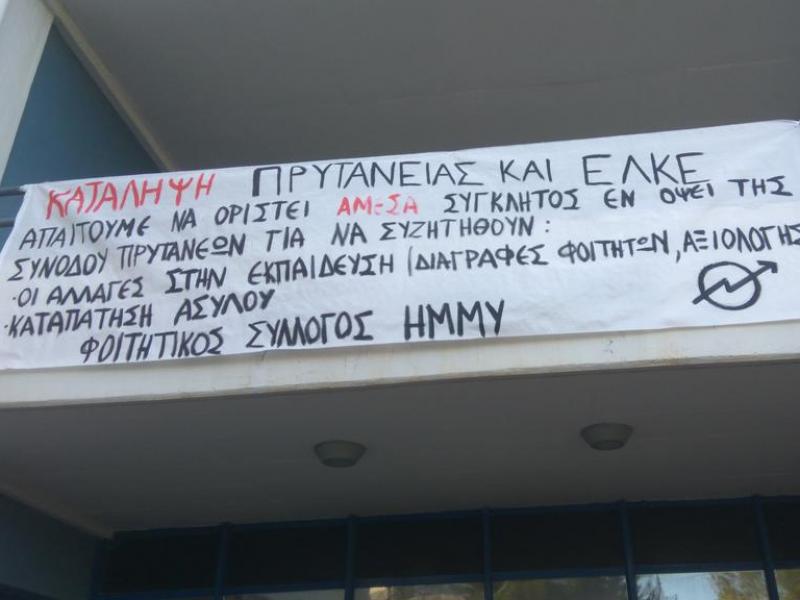 ΚΑΤΑΛΗΨΗ ΠΡΥΤΑΝΕΙΑΣ ΚΑΙ ΕΛΚΕ
ΑΠΑΙΤΟΥΜΕ ΝΑ ΟΡΙΣΤΕΙ ΑΜΕΣΑ ΣΥΓΚΛΗΤΟΣ ΕΝ ΟΨΕΙ ΤΗΣ
ΣΥΝΟΔΟΥ ΠΡΥΤΑΝΕΩΝ ΓΙΑ ΝΑ ΣΥΖΗΤΗΘΟΥΝ:
·ΟΙ ΑΛΛΑΓΕΣ ΣΤΗΝ ΕΚΠΑΙΔΕΥΣΗ (ΔΙΑΓΡΑΦΕΣ ΦΟΙΤΗΤΩΝ, ΑΞΙΟΛΟΓΗΣΗ
·ΚΑΤΑΠΑΤΗΣΗ ΑΣΥΛΟΥ
ΦΟΙΤΗΤΙΚΟΣ ΣΥΛΛΟΓΟΣ ΗΜΜΥ